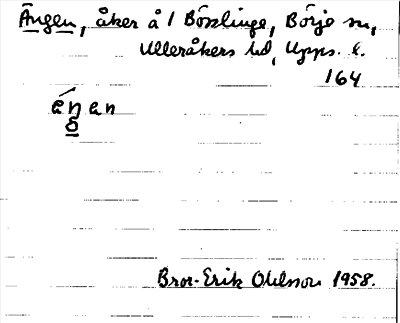 Ängen, åker å 1 Börslinge, Börje sn,
Ulleråkers hd, Upps. l.
164
Bror-Erik Ohlsson 1958.